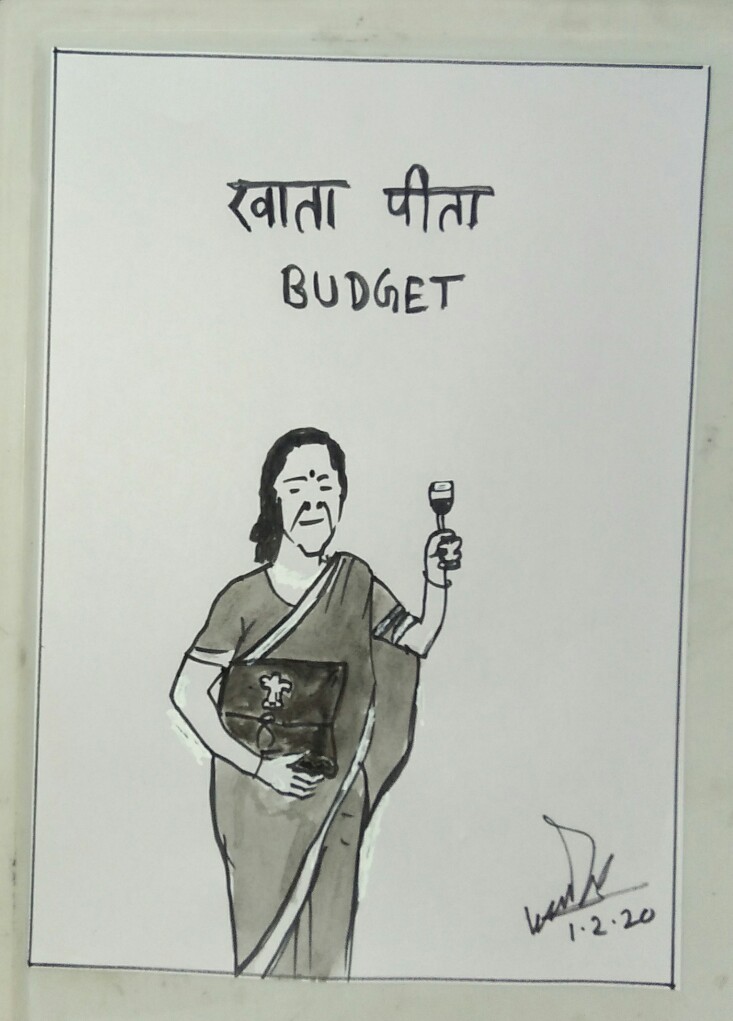 खाता पीता
BUDGET
1.2.20